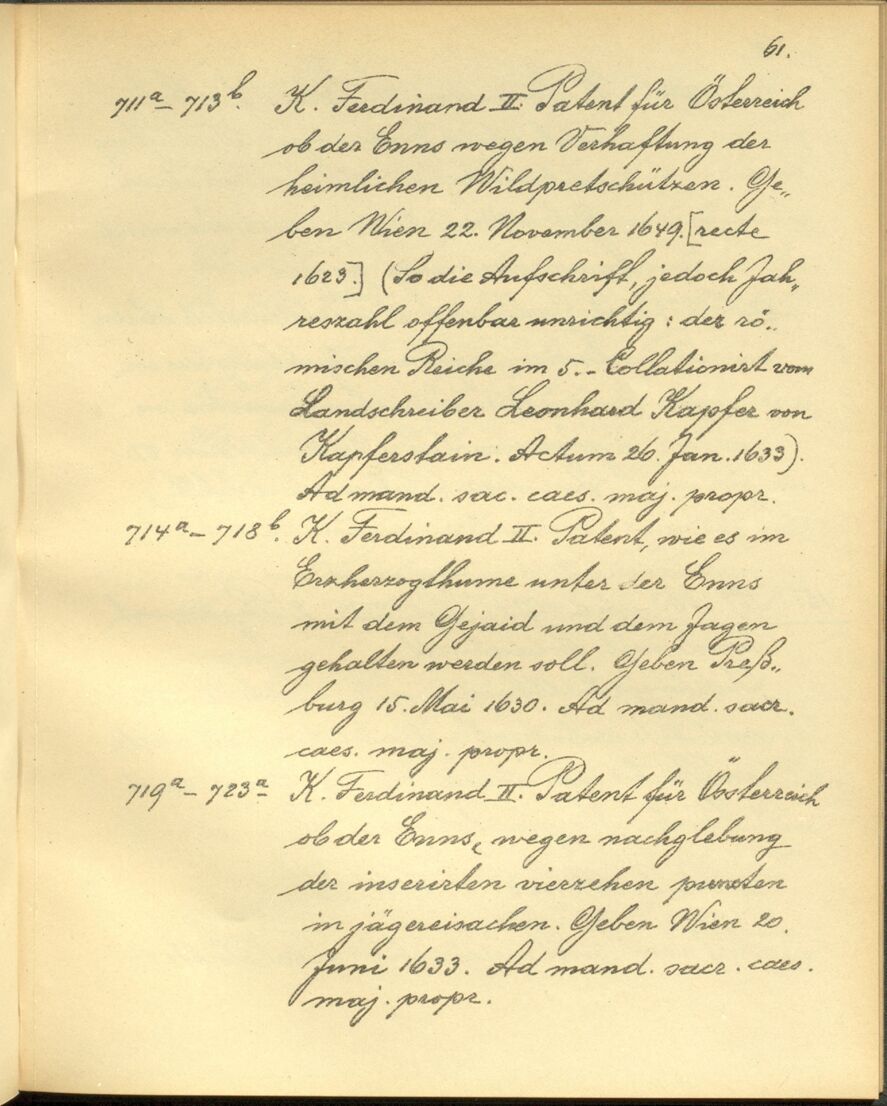 61.
711a – 713b. K. Ferdinand II. Patent für Österreich
ob der Enns wegen Verhaftung der
heimlichen Wildpretschützen. Ge„
ben Wien 22. November 1649. [recte
1623.] (So die Aufschrift, jedoch Jah„
reszahl offenbar unrichtig: der rö„
mischen Reiche im 5. – Collationirt vom
Landschreiber Leonhard Kapfer von
Kapferstain. Actum 26. Jan. 1633).
Ad mand. sac. caes. maj. propr.
714a – 718b. K. Ferdinand II. Patent, wie es im
Erzherzogthume unter der Enns
mit dem Gejaid und dem Jagen
gehalten werden soll. Geben Preß„
burg 15. Mai 1630. Ad mand. sacr.
caes. maj. propr.
719a – 723a K. Ferdinand II. Patent für Österreich
ob der Enns, wegen nachglebung
der inserirten vierzehen puncten
in jägereisachen. Geben Wien 20.
Juni 1633. Ad mand. sacr. caes.
maj. propr.